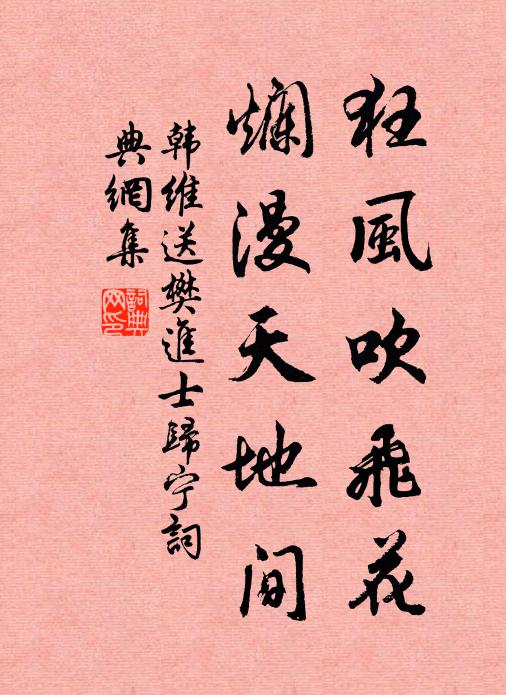 狂風吹飛花
爛漫天地間
韩維送樊進士歸宁詞
典網集
詞典
网印